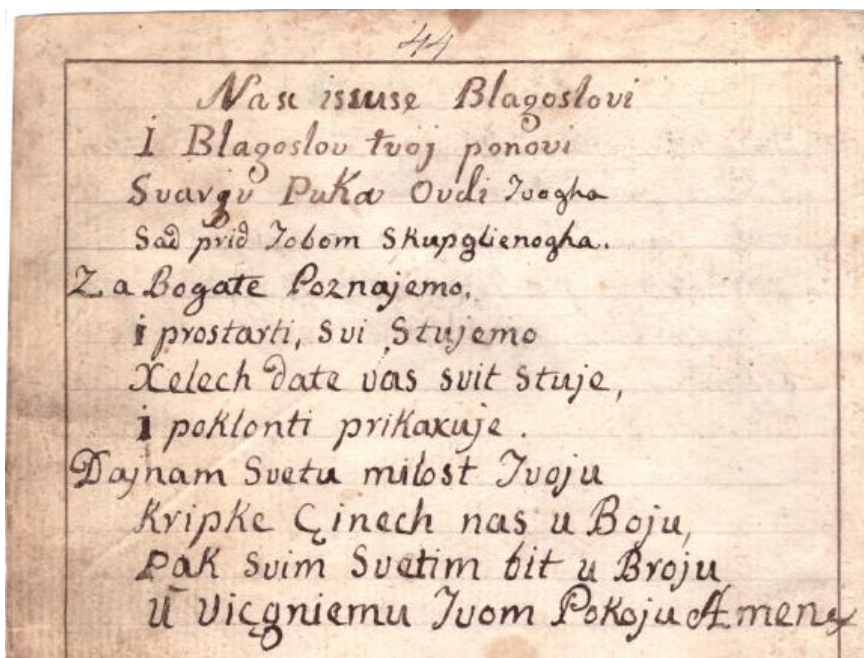 44
Nasc issuse Blagoslovi
I Blagoslov tvoj ponovi
Svargu Puka Ovdi Tvogha
Sad prid Tobom Skupglienogha.
Za Bogate Poznajemo,
i prostarti, Svi Stujemo
Xelech date vas svit Stuje,
i poklonti prikaxuje.
Dajnam Svetu milost Tvoju
Kripke Çinech nas u Boju,
Pak Svim Svetim bit u Broju
U Viçgniemu Tvom Pokoju Amen